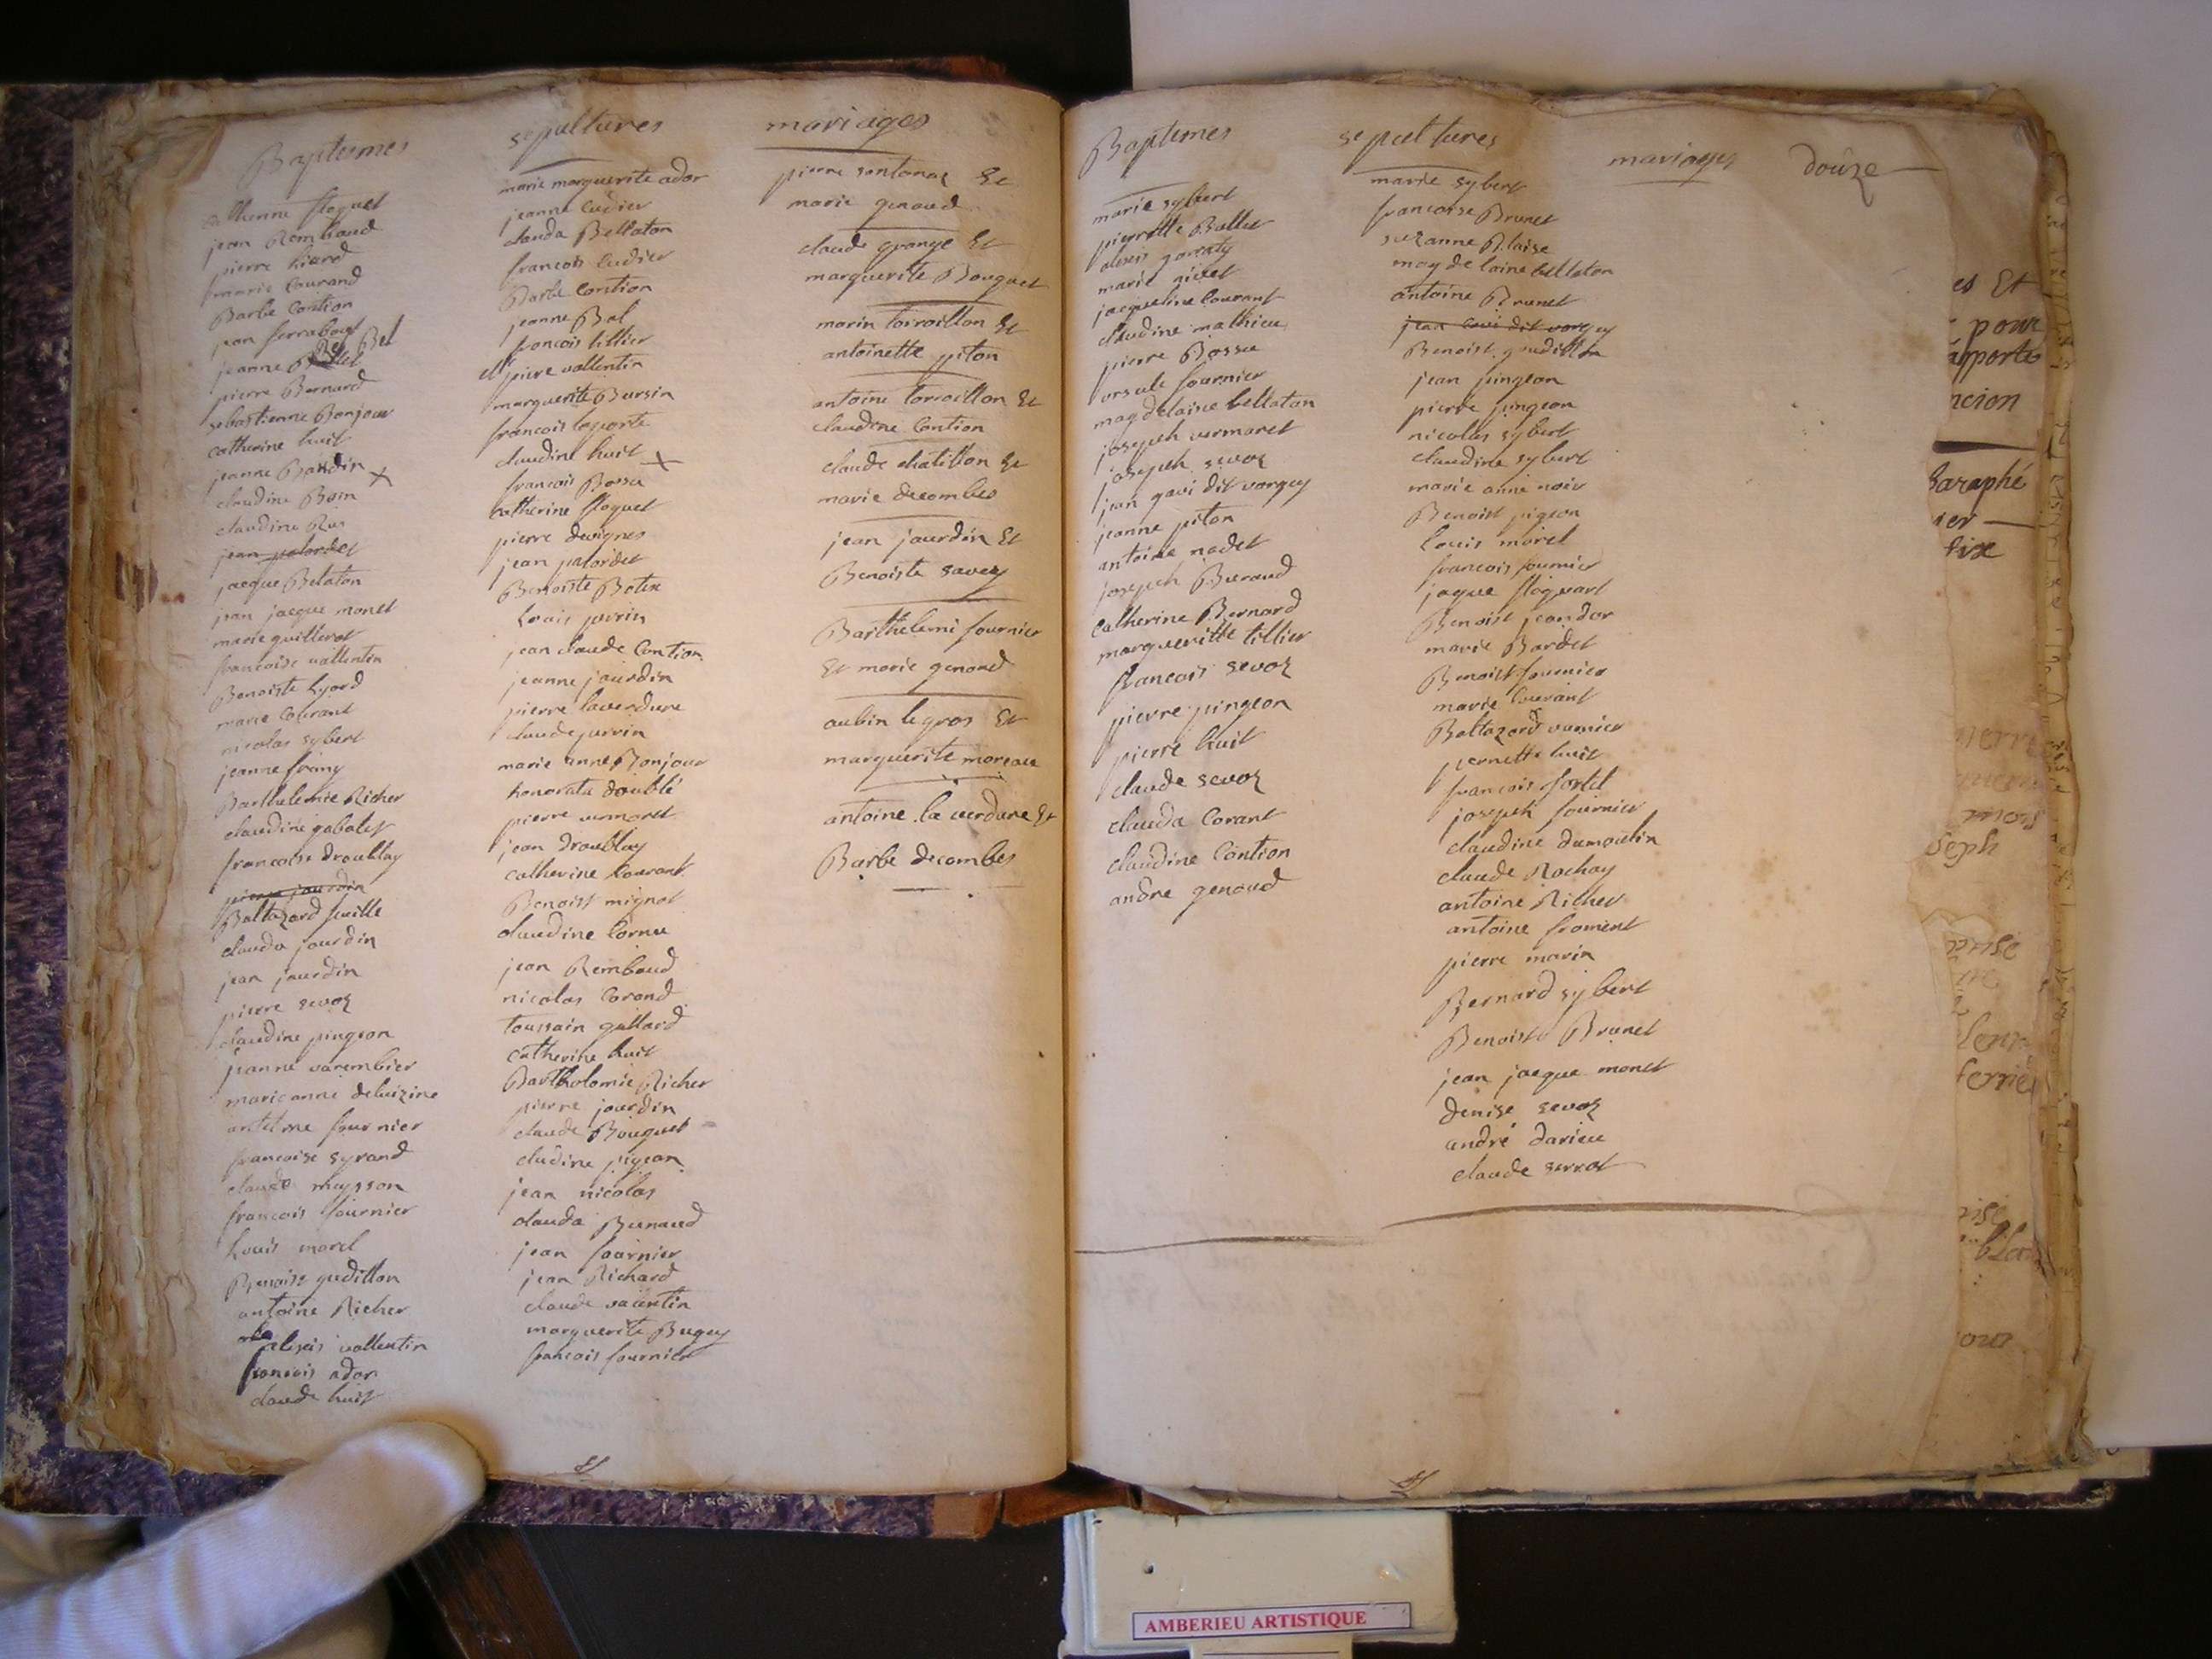 Baptemes
catherine floquet
jean Rembaud
pierre hiard
marie Courand
Barbe Contion
jean ferrabout
jeanne Bel
pierre Bernard
sebastienne Bonjour
catherine huit
jeanne Baudin x
claudine Boin
claudine Rus
jean palordet
jacque Belaton
jean jacque monet
marie guillerot
francoise vallentin
Benoiste hyard
marie Courant
nicolas sybert
jeanne framy
Barthelemie Richer
claudine gabatet
francoise droublay
pierre jourdin
Baltazard
clauda jourdin
jean jourdin
pierre sevoz
claudine pingeon
jeanne varembier
marie anne deluizine
antelme fournier
francoise syrand
claude musson
francois fournier
Louis morel
Benoist guditton
antoine Richer
alexis vallentin
francois ador
claude huit
sepultures
marie marguerite ador
jeanne Cudier
clauda Bellaton
francois Cudier
Barbe Contion
jeanne Bal
francois tillier
pierre vallentin
marguerite Bursin
francois laporte
claudine huit x
francois Bossu
Catherine floquet
pierre devignes
jean palordet
Benoiste Botex
Louis perrin
jean claude Contion
jeanne jourdin
pierre laverdure
claude perrin
marie anne Bonjour
honorata doublé
pierre vermoret
jean droublay
catherine Courant
Benoist mignot
claudine Cornu
jean Rembaud
nicolas Corand
toussain gallard
catherine huit
Bartholomie Richer
pierre jourdin
claude Bouquet
cludine pigeon
jean nicolas
clauda Buraud
jean fournier
jean Richard
claude valentin
marguerite Buguy
francois fournier
mariages
pierre santonaz Et
marie genoud
claude grange Et
marguerite Bouquet
marin torroillon Et
antoinette piton
antoine torroillon Et
claudine Contion
claude chatillon Et
marie decombes
jean jourdin Et
Benoiste savey
Barthelemi fournier
Et marie genoud
aubin legros Et
marguerite moreau
antoine la verdure Et
Barbe decombes
Baptemes
marie sybert
pierrette Ballet
alexis gouraty
marie nivet
jacqueline Courant
claudine mathieu
pierre Bossu
ursule fournier
magdelaine bellaton
joseph vermoret
joseph sevoz
jean gavi dit vorgey
jeanne piton
antoine nadet
joseph Buraud
Catherine Bernard
marguerite tillier
francois sevoz
pierre pingeon
pierre huit
claude sevoz
clauda Corant
claudine Contion
andre genoud
sepultures
marie sybert
francoise Brunet
suzanne Blaise
magdelaine bellaton
antoine Brunet
jean gavi dit vorgey
Benoist guditton
jean pingeon
pierre pingeon
nicolas sybert
claudine sybert
marie anne noir
Benoist pigeon
Louis morel
francois fournier
jaque floquart
Benoist jeandor
marie Bardet
Benoist fournier
marie Courant
Baltazard varnier
pernette huit
francois fortel
joseph fournier
claudine dumoulin
claude Rochay
antoine Richer
antoine froment
pierre marin
Bernard sybert
Benoist Brunet
jean jacque monet
denise sevoz
andré darieu
claude serrat
mariages
douze
es Et
pour
apporte
ncion
Paraphé
ier
dix
seph
AMBERIEU ARTISTIQUE